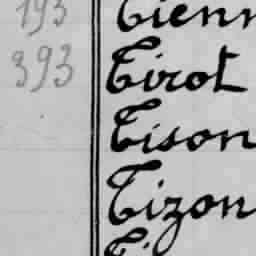 193 Tienn
393 Tirot
Tison
Tizon
Ti